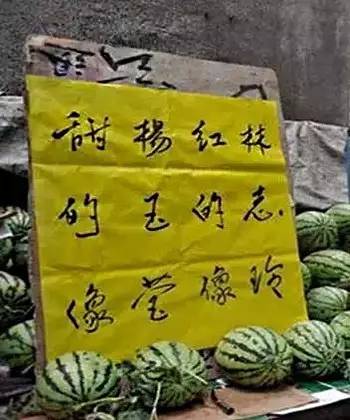 甜的像
楊玉莹
红的像
林志玲